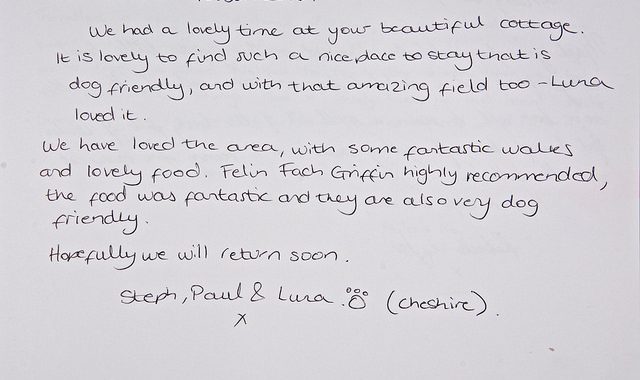 We had a lovely time at your beautiful cottage.
It is lovely to find such a nice place to stay that is
dog friendly, and with that amazing field too - Luna
loved it.
We have loved the area, with some fantastic walks
and lovely food. Felin Fach Griffin highly recommended,
the food was fantastic and they are also very dog
friendly.
Hopefully we will return soon.
Steph, Paul & Luna. (Cheshire).
x